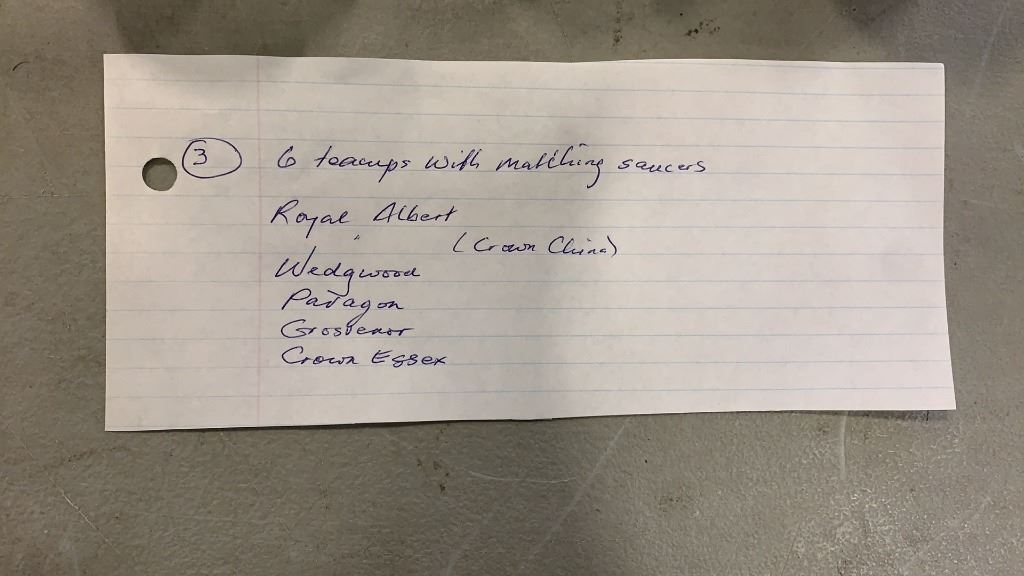 3 6 teacups with matching saucers
Royal Albert
" (Crown China)
Wedgwood
Paragon
Grosvenor
Crown Essex